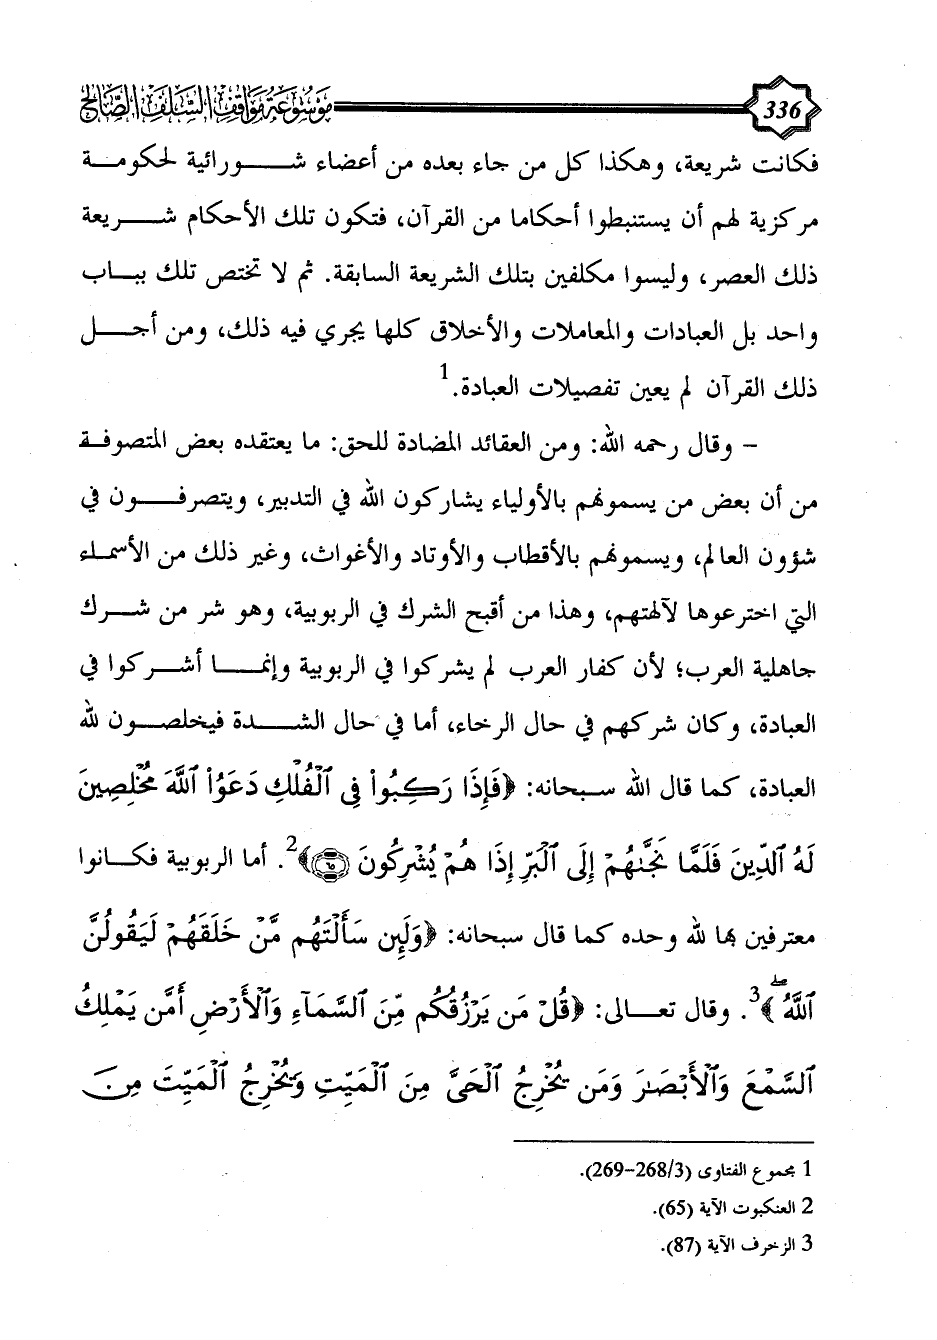 336
موسوعة مواقف السلف الصالح
فكانت شريعة، وهكذا كل من جاء بعده من أعضاء شورائية لحكومة
مركزية لهم أن يستنبطوا أحكاما من القرآن، فتكون تلك الأحكام شريعة
ذلك العصر، وليسوا مكلفين بتلك الشريعة السابقة. ثم لا تختص تلك بباب
واحد بل العبادات والمعاملات والأخلاق كلها يجري فيه ذلك، ومن أجل
ذلك القرآن لم يعين تفصيلات العبادة.1
– وقال رحمه الله: ومن العقائد المضادة للحق: ما يعتقده بعض المتصوفة
من أن بعض من يسمونهم بالأولياء يشاركون الله في التدبير، ويتصرفون في
شؤون العالم، ويسمونهم بالأقطاب والأوتاد والأغواث، وغير ذلك من الأسماء
التي اخترعوها لآلهتهم، وهذا من أقبح الشرك في الربوبية، وهو شر من شرك
جاهلية العرب؛ لأن كفار العرب لم يشركوا في الربوبية وإنما أشركوا في
العبادة، وكان شركهم في حال الرخاء، أما في حال الشدة فيخلصون لله
العبادة، كما قال الله سبحانه: ﴿فَإِذَا رَكِبُواْ فِي ٱلْفُلْكِ دَعَوُاْ ٱللَّهَ مُخْلِصِينَ
لَهُ ٱلدِّينَ فَلَمَّا نَجَّىٰهُمْ إِلَى ٱلْبَرِّ إِذَا هُمْ يُشْرِكُونَ ٦٥﴾2. أما الربوبية فكانوا
معترفين بها لله وحده كما قال سبحانه: ﴿وَلَئِن سَأَلْتَهُم مَّنْ خَلَقَهُمْ لَيَقُولُنَّ
ٱللَّهُ ۖ﴾3. وقال تعالى: ﴿قُلْ مَن يَرْزُقُكُم مِّنَ ٱلسَّمَآءِ وَٱلْأَرْضِ أَمَّن يَمْلِكُ
ٱلسَّمْعَ وَٱلْأَبْصَٰرَ وَمَن يُخْرِجُ ٱلْحَيَّ مِنَ ٱلْمَيِّتِ وَيُخْرِجُ ٱلْمَيِّتَ مِنَ
1 مجموع الفتاوى (3/268-269).
2 العنكبوت الآية (65).
3 الزخرف الآية (87).